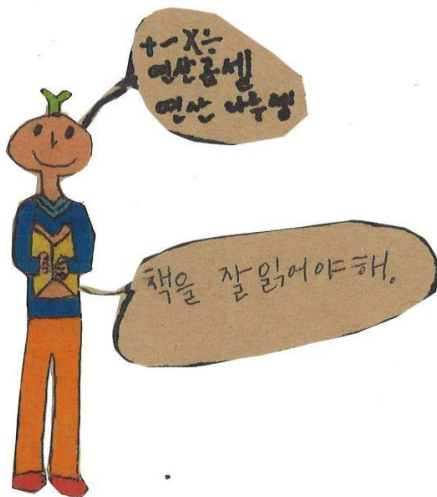 + - X ÷
연산곱셈
연산 나눗셈
책을 잘 읽어야 해.